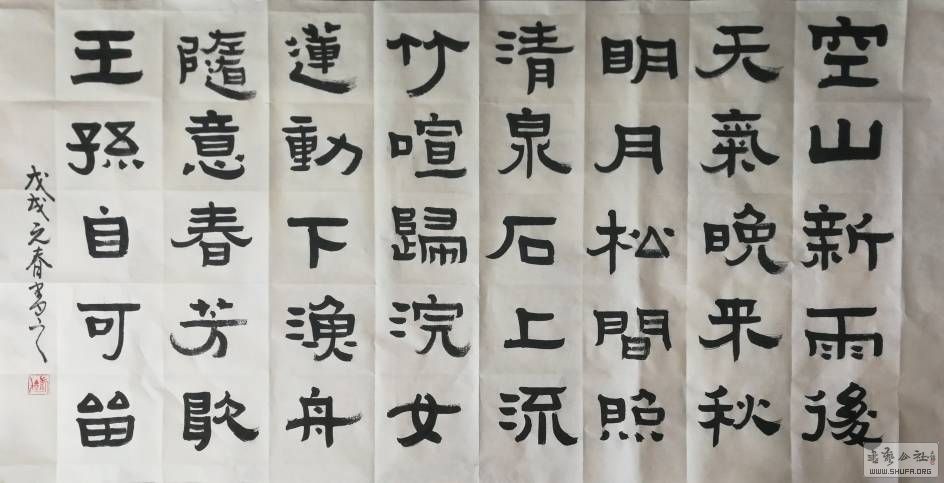 空山新雨後
天氣晚来秋
明月松間照
清泉石上流
竹喧歸浣女
蓮動下漁舟
隨意春芳歇
王孫自可留
戊戌元春書之
书艺公社
WWW.SHUFA.ORG